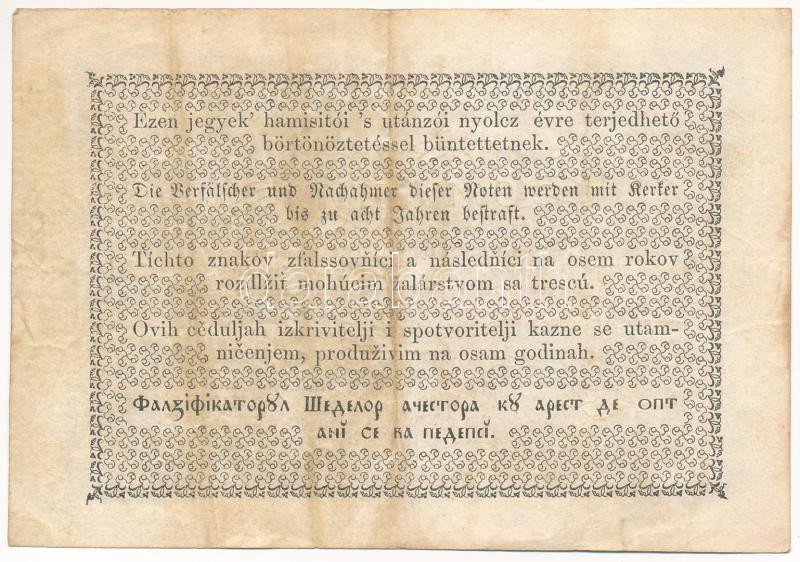 Ezen jegyek' hamisitói 's utánzói nyolcz évre terjedhető
börtönöztetéssel büntettetnek.
Die Verfälscher und Nachahmer dieser Noten werden mit Kerker
bis zu acht Jahren bestraft.
Tíchto znakov zfalssovňíci a následňíci na osem rokov
mohúcim žalárstvom sa trescú.
Ovih cěduljah izkrivitelji i spotvoritelji kazne se utam-
ničenjem, produživim na osam godinah.
Фалзіфікаторꙋл Шеделор ачестора кꙋ арест де опт
анї се ва педепсі.
darabanth